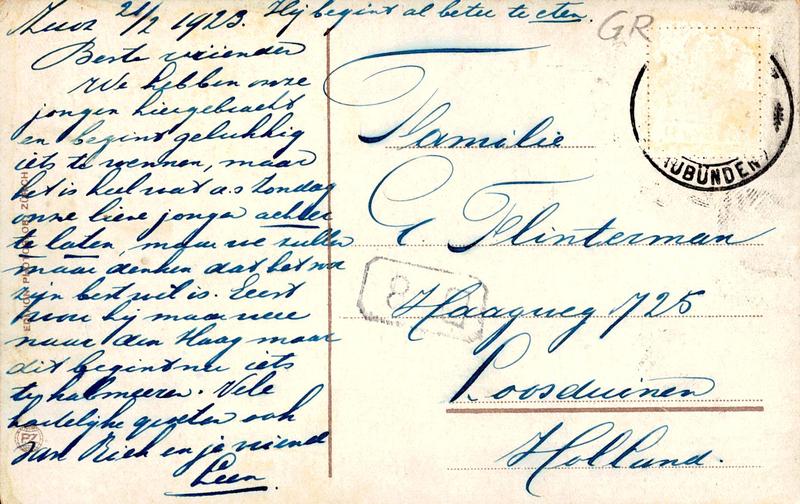 Zuoz 21/2 1923. Hij begint al beter te eten.
Beste vrienden
We hebben onze
jongen hiergebracht
en begint gelukkig
iets te wennen, maar
het is heel wat a.s. Zondag
onze lieve jongen achter
te laten, maar we zullen
maar denken dat het voor
zijn best wil is. Eerst
wou hij maar weer
naar den Haag maar
dit begint nu iets
te kalmeeren. Vele
hartelijke groeten ook
van Riek en je vriend
Leen
GR
UBÜNDEN
Familie
G. Flinterman
Haagweg 725
Loosduinen
Holland.